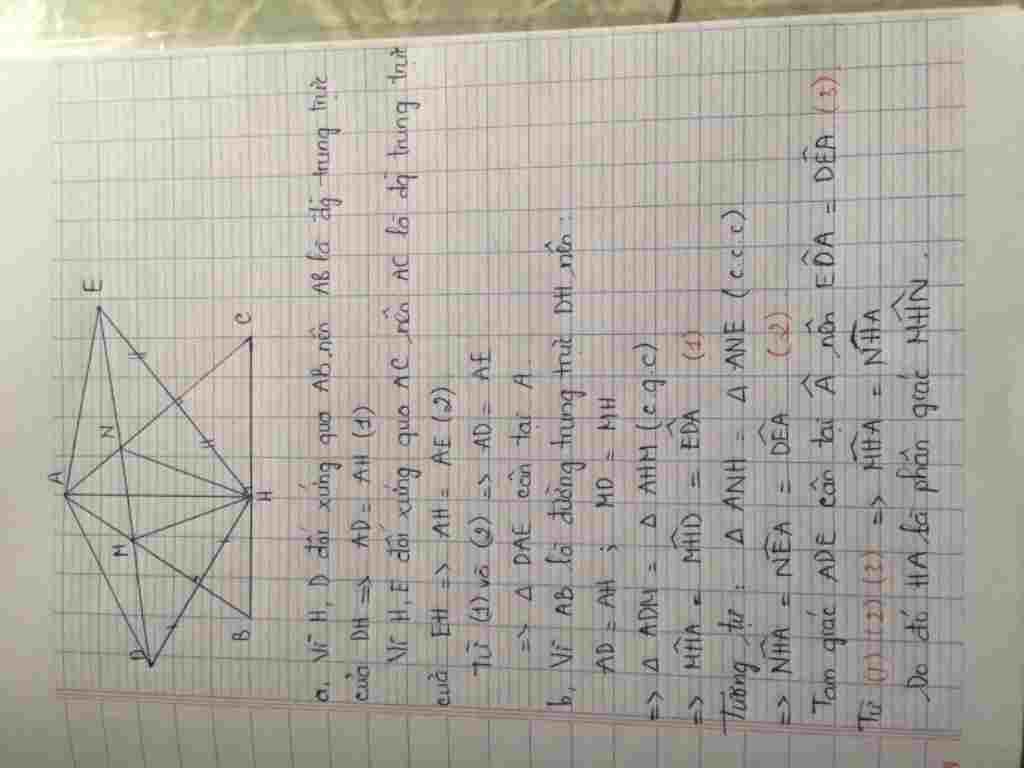 A
E
M
N
D
B
H
C
a, Vì H, D đối xứng qua AB, nên AB là đg trung trực
của DH => AD = AH (1)
Vì H, E đối xứng qua AC, nên AC là đg trung trực
của EH => AH = AE (2)
Từ (1) và (2) => AD = AE
=> Δ DAE cân tại A.
b, Vì AB là đường trung trực DH, nên:
AD = AH ; MD = MH
=> Δ ADM = Δ AHM (c.g.c)
=> M̂HA = M̂HD = ÊDA (1)
Tương tự: Δ ANH = Δ ANE (c.c.c)
=> N̂HA = N̂EA = D̂EA (2)
Tam giác ADE cân tại Â, nên ÊDA = D̂EA (3).
Từ (1) (2) (3) => M̂HA = N̂HA
Do đó HA là phân giác M̂HN.